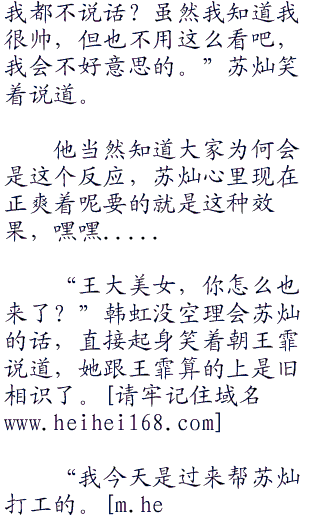 我都不说话？虽然我知道我
很帅，但也不用这么看吧，
我会不好意思的。”苏灿笑
着说道。
他当然知道大家为何会
是这个反应，苏灿心里现在
正爽着呢要的就是这种效
果，嘿嘿.....
“王大美女，你怎么也
来了？”韩虹没空理会苏灿
的话，直接起身笑着朝王霏
说道，她跟王霏算的上是旧
相识了。[请牢记住域名
www.heihei168.com]
“我今天是过来帮苏灿
打工的。[m.he